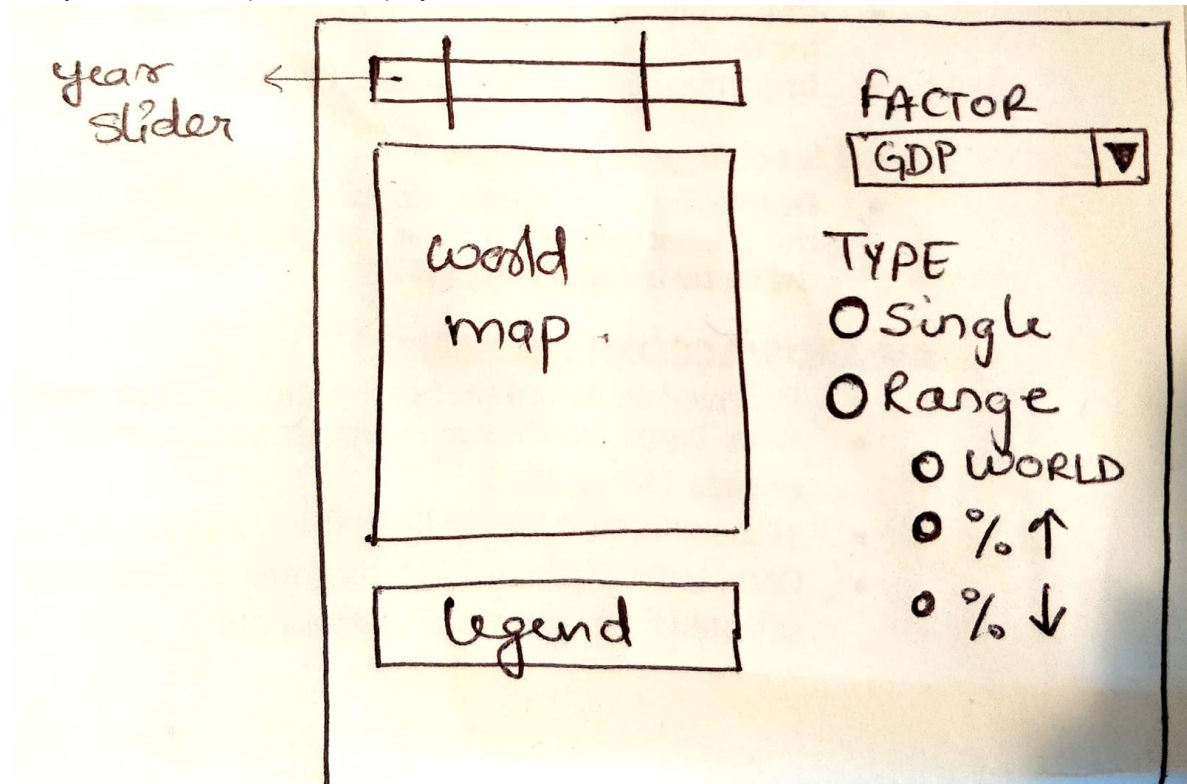 year
slider
world
map.
legend
FACTOR
GDP
TYPE
Single
Range
WORLD
% ↑
% ↓